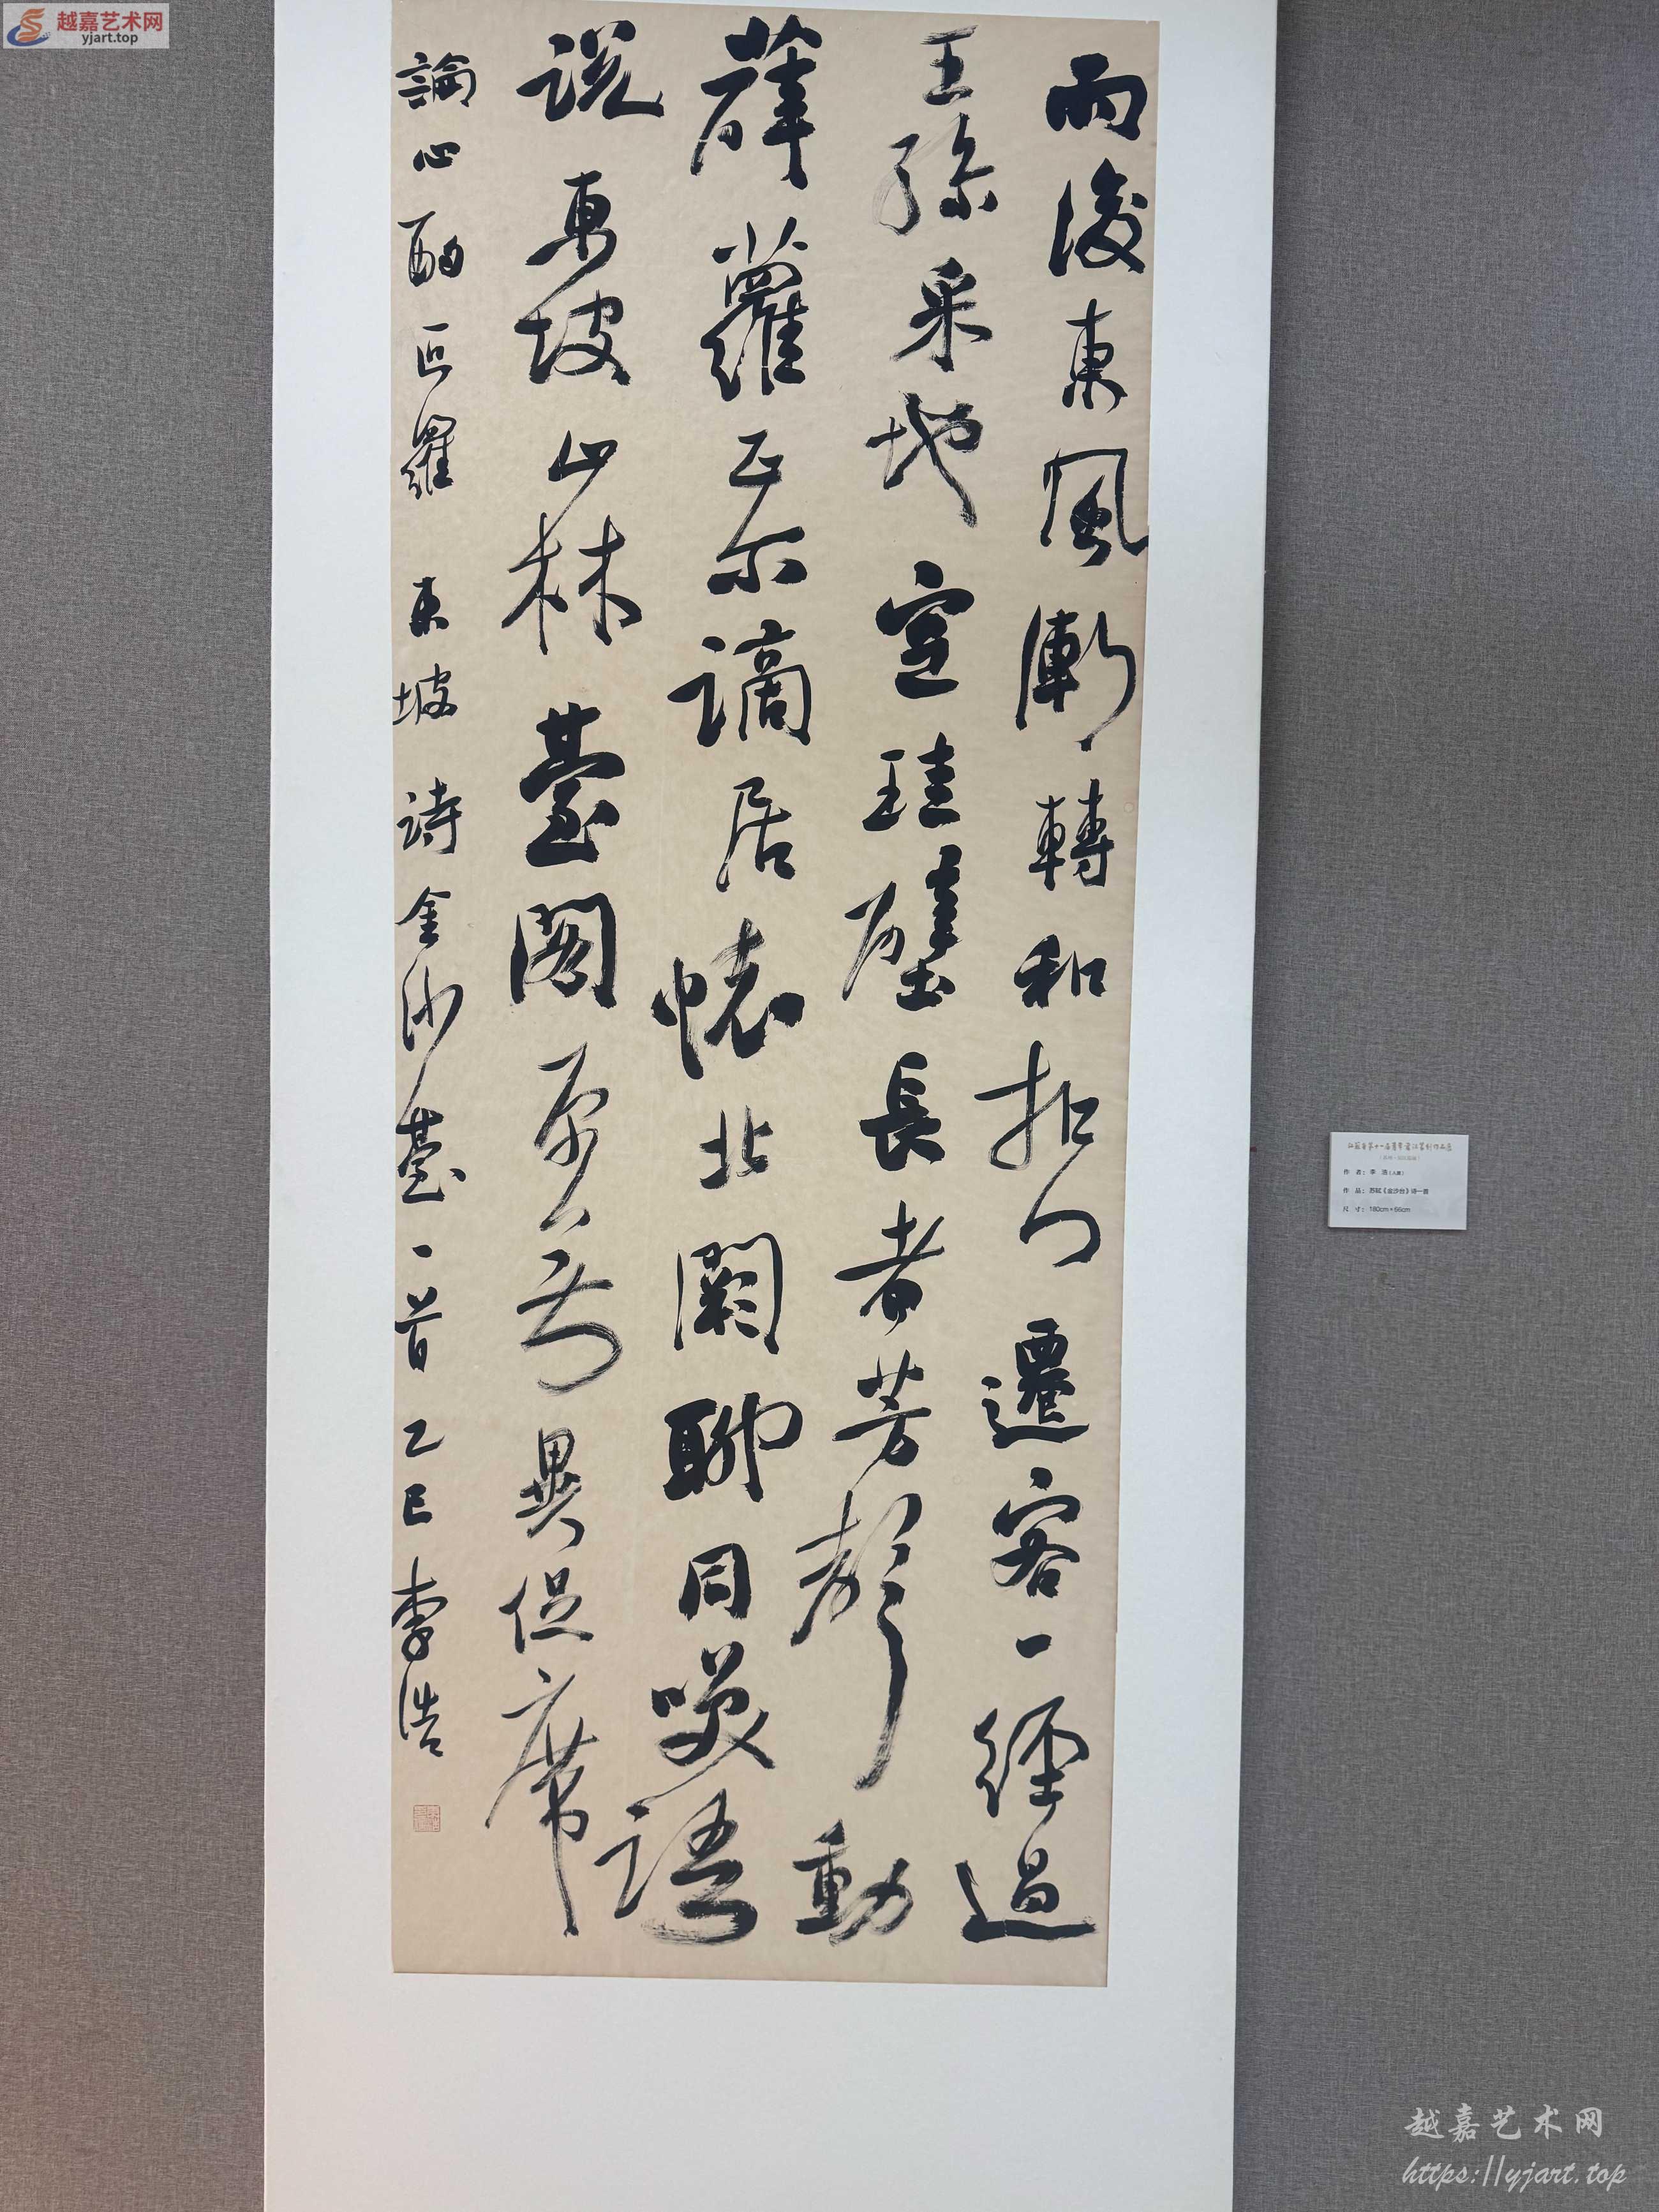 越嘉艺术网
yjart.top
雨後東風漸轉和扣門遷客一經過
王孫采地空珪璧長者芳聲動
薜蘿正尔謫居懷北闕聊同笑語
説東坡山林臺閣原無異促席
論心酌叵羅 東坡詩金沙臺一首 乙巳 李浩
作 者：李 浩(入展)
作 品：苏轼《金沙台》诗一首
尺 寸：180cm×66cm
越嘉艺术网
https://yjart.top